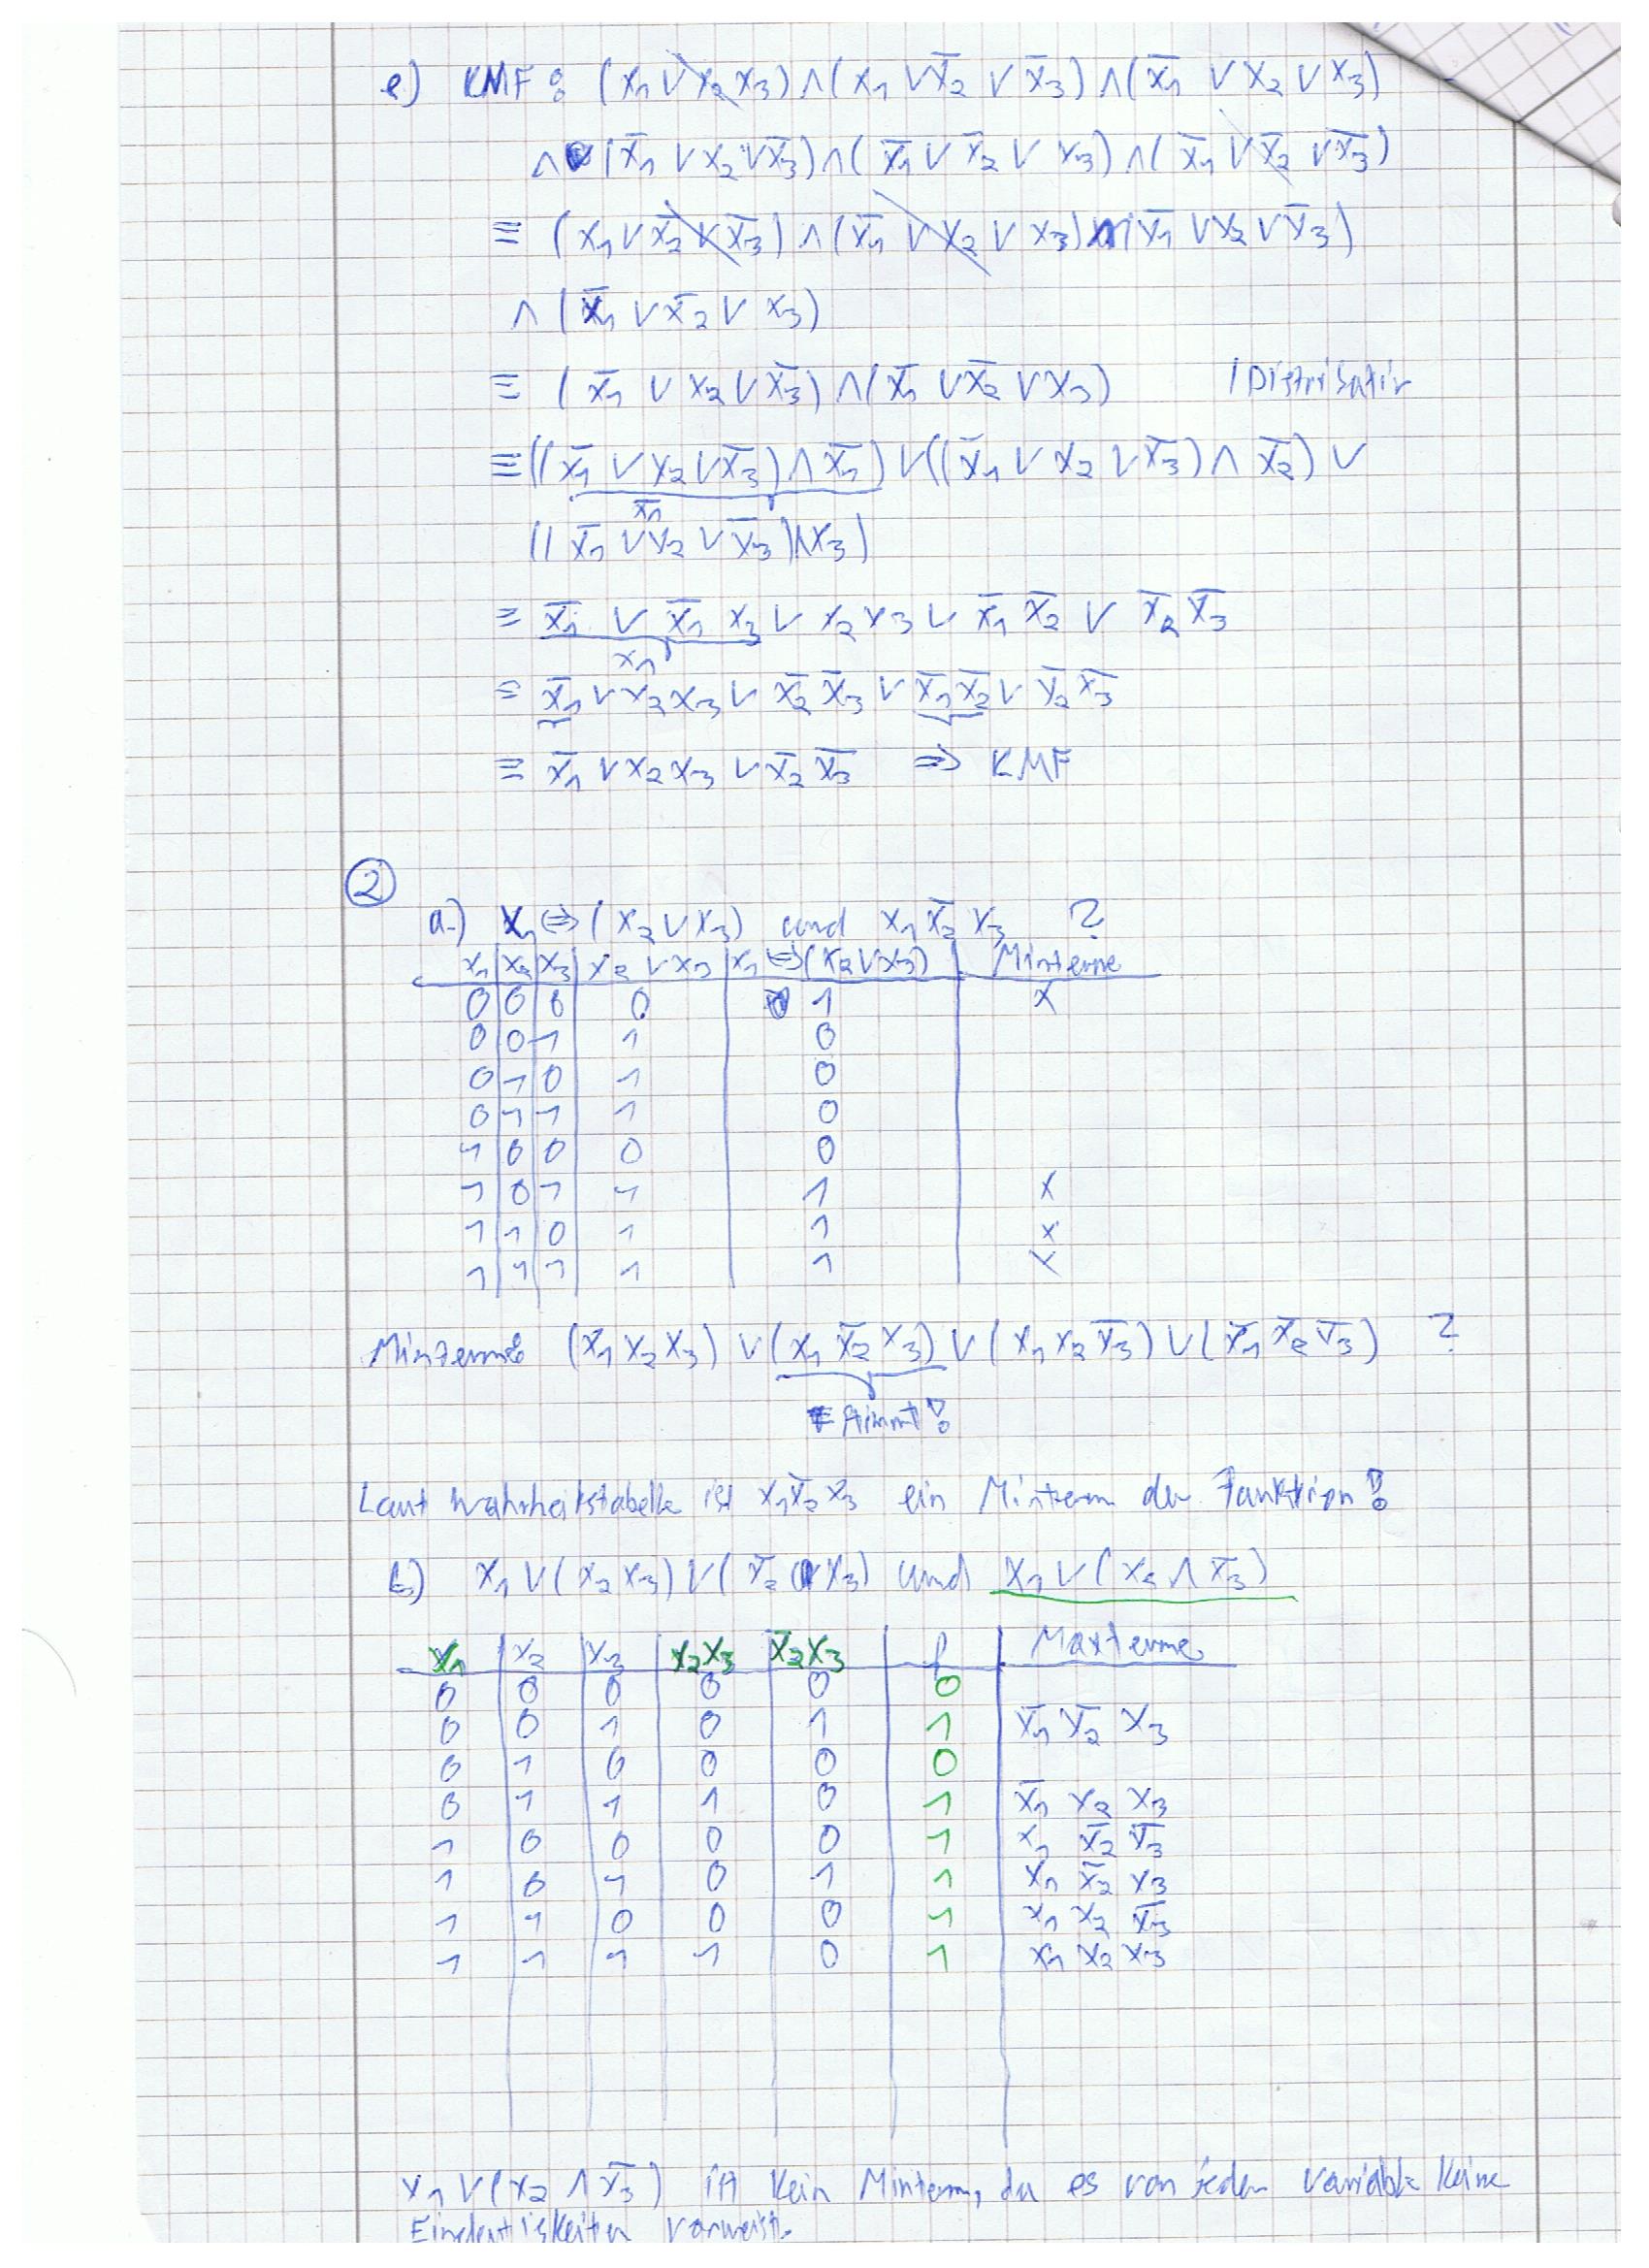 e) KMF: (x₁ ∨ x₂ x₃) ∧ (x₁ ∨ x̅₂ ∨ x̅₃) ∧ (x̅₁ ∨ x₂ ∨ x₃)
∧ (x̅₁ ∨ x₂ ∨ x̅₃) ∧ (x̅₁ ∨ x̅₂ ∨ x₃) ∧ (x̅₁ ∨ x̅₂ ∨ x̅₃)
≡ (x₁ ∨ x̅₂ ∨ x̅₃) ∧ (x̅₁ ∨ x₂ ∨ x₃) ∧ (x̅₁ ∨ x₂ ∨ x̅₃)
∧ (x̅₁ ∨ x̅₂ ∨ x₃)
≡ (x̅₁ ∨ x₂ ∨ x̅₃) ∧ (x̅₁ ∨ x̅₂ ∨ x₃) | Distributiv
≡ ((x̅₁ ∨ x₂ ∨ x̅₃) ∧ x̅₁) ∨ ((x̅₁ ∨ x₂ ∨ x̅₃) ∧ x̅₂) ∨
x̅₁
((x̅₁ ∨ x₂ ∨ x̅₃) ∧ x₃)
≡ x̅₁ ∨ x̅₁ x₃ ∨ x₂ x₃ ∨ x̅₁ x̅₂ ∨ x̅₂ x̅₃
x₁
≡ x̅₁ ∨ x₂ x₃ ∨ x̅₂ x̅₃ ∨ x̅₁ x̅₂ ∨ x̅₂ x̅₃
≡ x̅₁ ∨ x₂ x₃ ∨ x̅₂ x̅₃ ⇒ KMF
②
a.) x₁ ⇔ (x₂ ∨ x₃) und x₁ x̅₂ x₃ ?
x₁ x₂ x₃ x₂ ∨ x₃ x₁ ⇔ (x₂ ∨ x₃) Minterme
0 0 0 0 1 x
0 0 1 1 0
0 1 0 1 0
0 1 1 1 0
1 0 0 0 0
1 0 1 1 1 x
1 1 0 1 1 x
1 1 1 1 1 x
Minterme (x₁ x₂ x₃) ∨ (x₁ x̅₂ x₃) ∨ (x₁ x₂ x̅₃) ∨ (x̅₁ x̅₂ x̅₃) ?
stimmt!
Laut Wahrheitstabelle ist x₁ x̅₂ x₃ ein Minterm der Funktion!
b) x₁ ∨ (x₂ x₃) ∨ (x̅₂ x₃) und x₁ ∨ (x₂ ∧ x̅₃)
x₁ x₂ x₃ x₂x₃ x̅₂x₃ f Maxterme
0 0 0 0 0 0
0 0 1 0 1 1 x̅₁ x̅₂ x₃
0 1 0 0 0 0
0 1 1 1 0 1 x̅₁ x₂ x₃
1 0 0 0 0 1 x₁ x̅₂ x̅₃
1 0 1 0 1 1 x₁ x̅₂ x₃
1 1 0 0 0 1 x₁ x₂ x̅₃
1 1 1 1 0 1 x₁ x₂ x₃
x₁ ∨ (x₂ ∧ x̅₃) ist kein Minterm, da es von jeder Variable keine
Eindeutigkeiten vorweist.